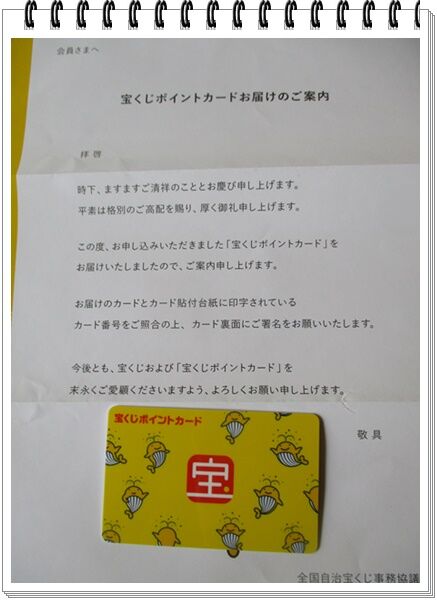 会員さまへ
宝くじポイントカードお届けのご案内
拝啓
時下、ますますご清祥のこととお慶び申し上げます。
平素は格別のご高配を賜り、厚く御礼申し上げます。
この度、お申し込みいただきました「宝くじポイントカード」を
お届けいたしましたので、ご案内申し上げます。
お届けのカードとカード貼付台紙に印字されている
カード番号をご照合の上、カード裏面にご署名をお願いいたします。
今後とも、宝くじおよび「宝くじポイントカード」を
末永くご愛顧くださいますよう、よろしくお願い申し上げます。
敬具
宝くじポイントカード
宝
全国自治宝くじ事務協議